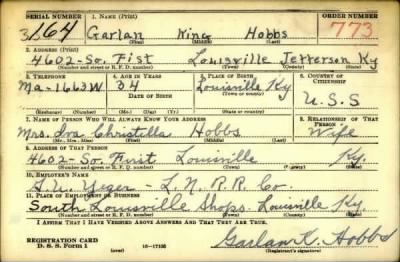 SERIAL NUMBER 1. NAME (Print) ORDER NUMBER
3164 Garlan King Hobbs 773
(First) (Middle) (Last)
2. ADDRESS (Print)
4602-So. Fist Louisville Jefferson Ky
(Number and street or R. F. D. number) (Town) (County) (State)
3. TELEPHONE 4. AGE IN YEARS 5. PLACE OF BIRTH 6. COUNTRY OF CITIZENSHIP
Ma-1663W 34 Louisville
DATE OF BIRTH (Town or county)
Ky U.S.S
(Exchange) (Number) (Mo.) (Day) (Yr.) (State or country)
7. NAME OF PERSON WHO WILL ALWAYS KNOW YOUR ADDRESS 8. RELATIONSHIP OF THAT PERSON
Mrs. Iva Christilla Hobbs Wife
(Mr., Mrs., Miss) (First) (Middle) (Last)
9. ADDRESS OF THAT PERSON
4602-So. First Louisville Ky.
(Number and street or R. F. D. number) (Town) (County) (State)
10. EMPLOYER'S NAME
Yeger - L. N. R. R. Co.
11. PLACE OF EMPLOYMENT OR BUSINESS
South Louisville Shops. Louisville Ky.
(Number and street or R. F. D. number) (Town) (County) (State)
I AFFIRM THAT I HAVE VERIFIED ABOVE ANSWERS AND THAT THEY ARE TRUE.
REGISTRATION CARD
D. S. S. Form 1 (over) 16-17105
Garlan K. Hobbs
(Registrant's signature)